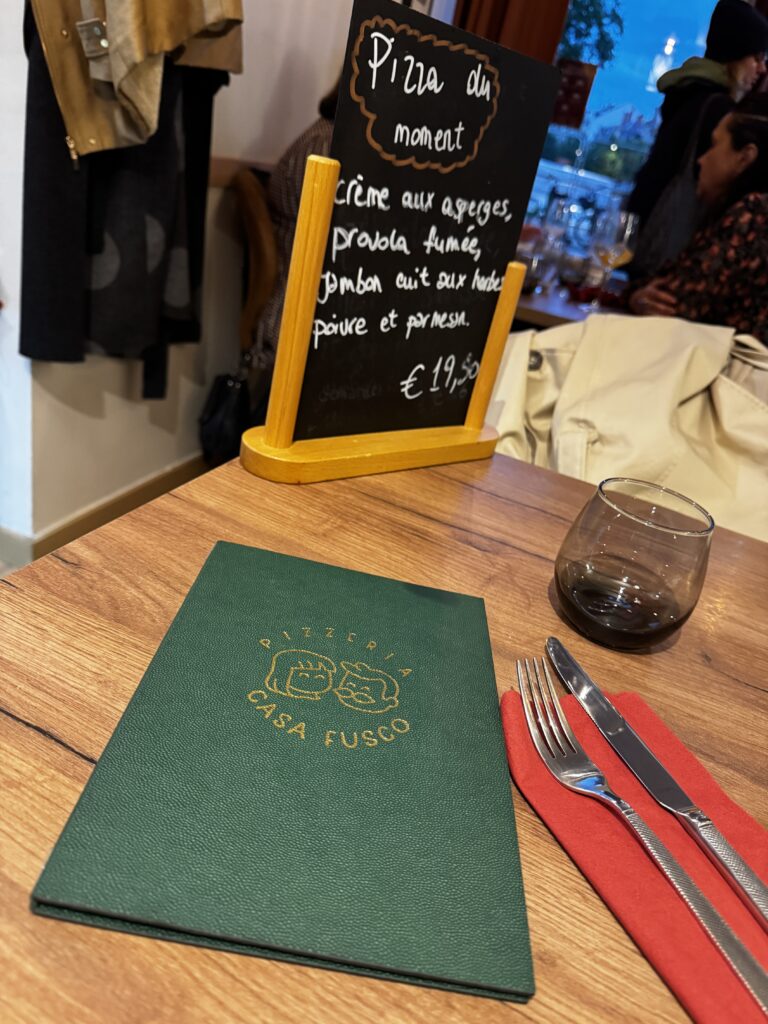 Pizza du
moment
crème aux asperges,
provola fumée,
jambon cuit aux herbes
poivre et parmesan.
€ 19,50
PIZZERIA
CASA FUSCO